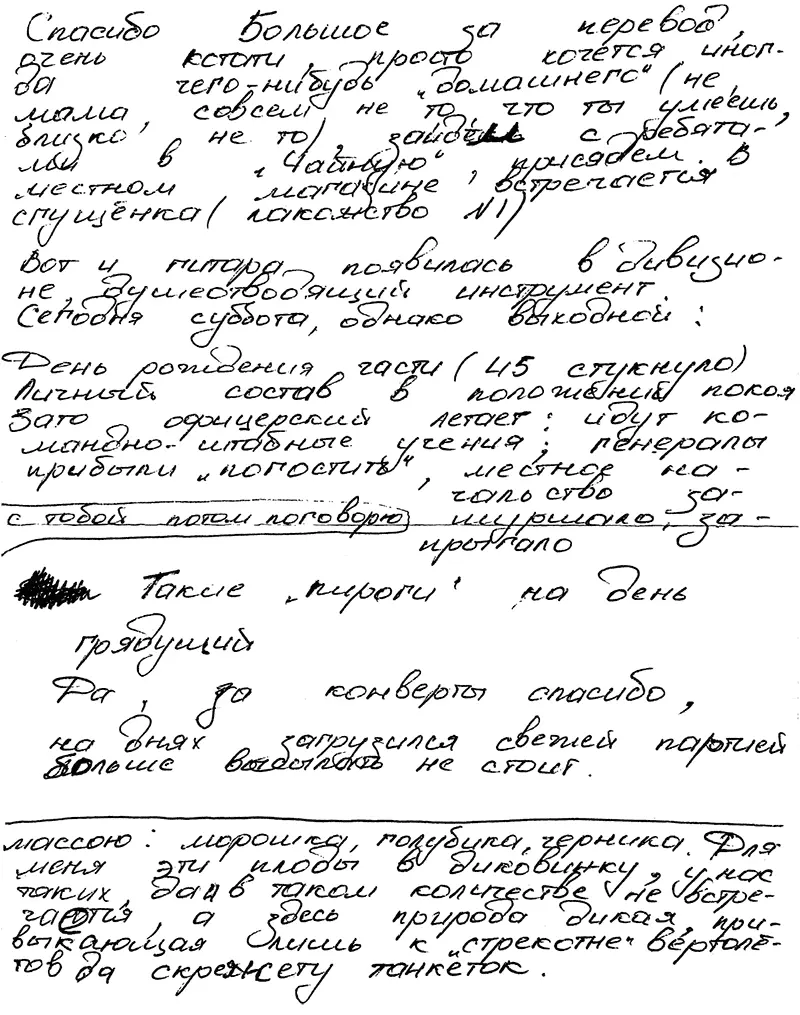 Спасибо Большое за перевод,
очень кстати, просто хочется иног-
да чего-нибудь „домашнего“ (не,
мама, совсем не то, что ты умеешь,
близко не то), зайдём с ребята-
ми в „Чайную“, присядем. В
местном магазине, встречается
сгущёнка (лакомство №1)
Вот и гитара появилась в дивизио-
не, душеотводящий инструмент.
Сегодня суббота, однако выходной:
День рождения части (45 стукнуло)
Личный состав в положении покоя
Зато офицерский летает: идут ко-
мандно-штабные учения; генералы
прибыли „погостить“, местное на-
чальство за-
с тобой потом поговорю шуршало, за-
прыгало
Такие „пироги“ на день
грядущий
Да, за конверты спасибо,
на днях загрузился свежей партией
больше высылать не стоит.
массою: морошка, голубика, черника. Для
меня эти плоды в диковинку, у нас
таких, да и в таком количестве не встре-
чается, а здесь природа дикая, при-
выкающая лишь к „стрекотне“ вертолё-
тов да скрежету танкеток.